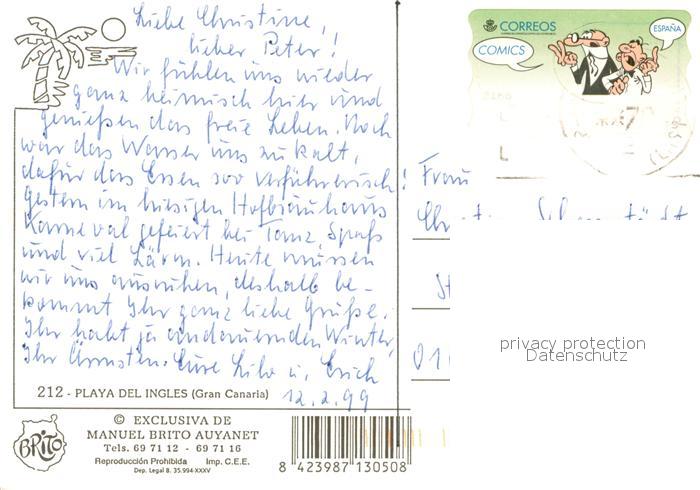 Liebe Christine,
lieber Peter!
Wir fühlen uns wieder
ganz heimisch hier und
genießen das freie Leben. Noch
war das Wasser uns zu kalt,
dafür das Essen soo verführerisch!
Gestern im hiesigen Hofbräuhaus
Karneval gefeiert bei Tanz, Spaß
und viel Lärm. Heute müssen
wir uns ausruhen, deshalb be-
kommt Ihr ganz liebe Grüße.
Ihr habt ja andauernden Winter,
Ihr Ärmsten. Eure Lilo u. Erich
12.2.99
212 - PLAYA DEL INGLES (Gran Canaria)
BRITO
© EXCLUSIVA DE
MANUEL BRITO AUYANET
Tels. 69 71 12 - 69 71 16
Reproducción Prohibida Imp. C.E.E.
Dep. Legal B. 35.994-XXXV
8 423987 130508
CORREOS
COMICS
ESPAÑA
Frau
St
01
privacy protection
Datenschutz